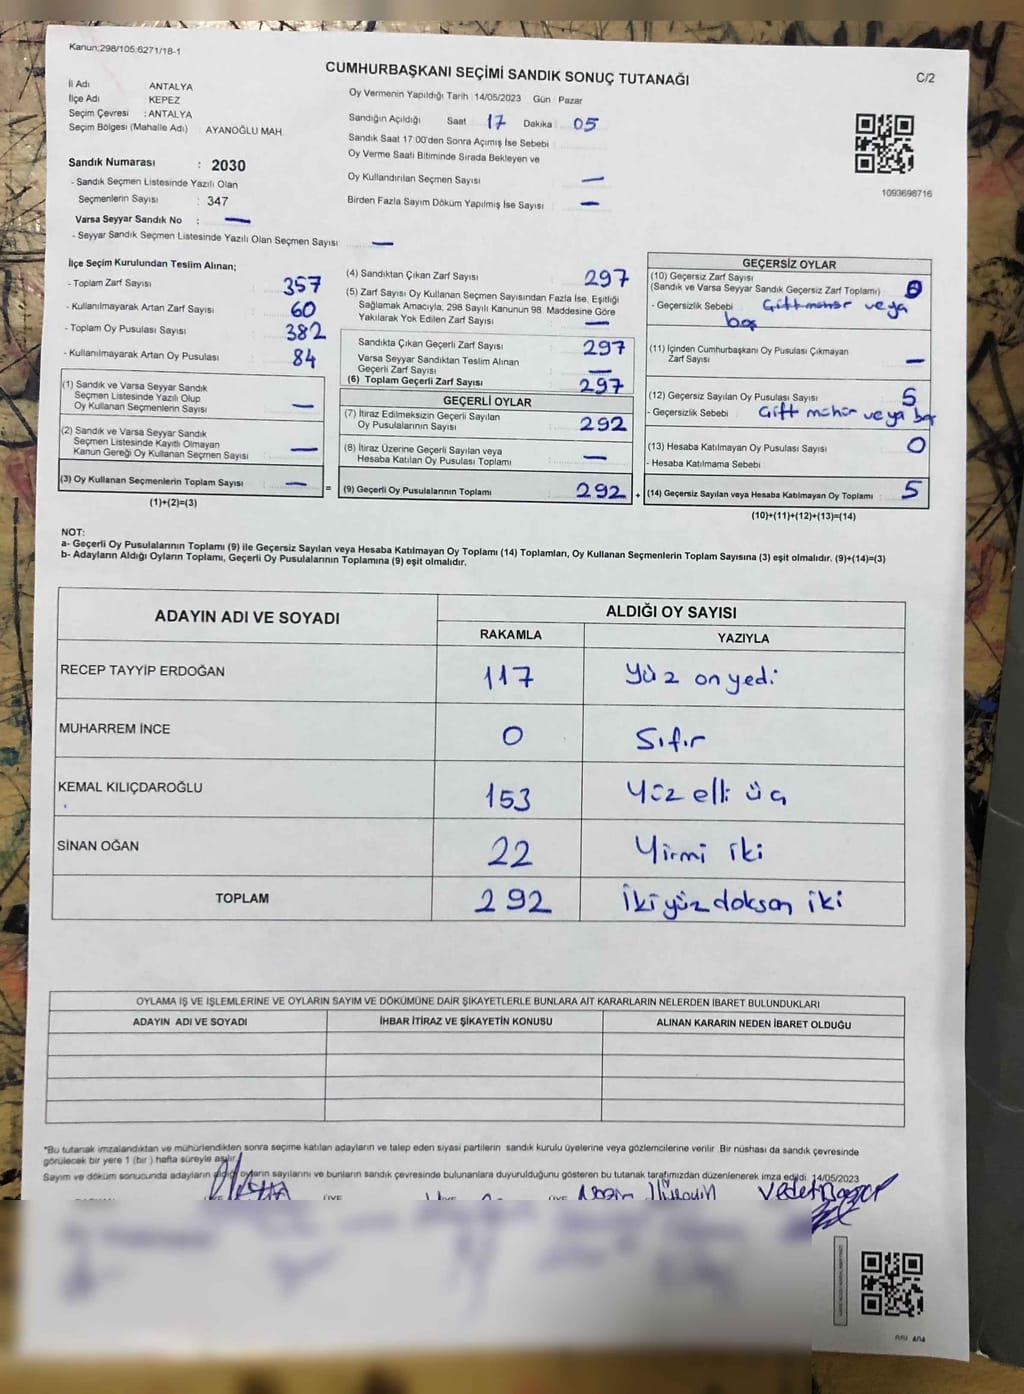 Kanun:298/105;6271/18-1
CUMHURBAŞKANI SEÇİMİ SANDIK SONUÇ TUTANAĞI
C/2
İl Adı ANTALYA
İlçe Adı KEPEZ
Seçim Çevresi : ANTALYA
Seçim Bölgesi (Mahalle Adı) AYANOĞLU MAH
Oy Vermenin Yapıldığı Tarih :14/05/2023 Gün : Pazar
Sandığın Açıldığı Saat 17 Dakika 05
Sandık Saat 17:00'den Sonra Açımış İse Sebebi
Oy Verme Saati Bitiminde Sırada Bekleyen ve
Oy Kullandırılan Seçmen Sayısı —
Birden Fazla Sayım Döküm Yapılmış İse Sayısı —
1093698716
Sandık Numarası : 2030
- Sandık Seçmen Listesinde Yazılı Olan
Seçmenlerin Sayısı : 347
Varsa Seyyar Sandık No : —
- Seyyar Sandık Seçmen Listesinde Yazılı Olan Seçmen Sayısı —
İlçe Seçim Kurulundan Teslim Alınan;
- Toplam Zarf Sayısı 357
- Kullanılmayarak Artan Zarf Sayısı 60
- Toplam Oy Pusulası Sayısı 382
- Kullanılmayarak Artan Oy Pusulası 84
(1) Sandık ve Varsa Seyyar Sandık
Seçmen Listesinde Yazılı Olup
Oy Kullanan Seçmenlerin Sayısı —
(2) Sandık ve Varsa Seyyar Sandık
Seçmen Listesinde Kayıtlı Olmayan
Kanun Gereği Oy Kullanan Seçmen Sayısı —
(3) Oy Kullanan Seçmenlerin Toplam Sayısı — =
(1)+(2)=(3)
(4) Sandıktan Çıkan Zarf Sayısı 297
(5) Zarf Sayısı Oy Kullanan Seçmen Sayısından Fazla İse, Eşitliği
Sağlamak Amacıyla, 298 Sayılı Kanunun 98. Maddesine Göre
Yakılarak Yok Edilen Zarf Sayısı —
Sandıkta Çıkan Geçerli Zarf Sayısı 297
Varsa Seyyar Sandıktan Teslim Alınan
Geçerli Zarf Sayısı —
(6) Toplam Geçerli Zarf Sayısı 297
GEÇERLİ OYLAR
(7) İtiraz Edilmeksizin Geçerli Sayılan
Oy Pusulalarının Sayısı 292
(8) İtiraz Üzerine Geçerli Sayılan veya
Hesaba Katılan Oy Pusulası Toplamı —
(9) Geçerli Oy Pusulalarının Toplamı 292 +
GEÇERSİZ OYLAR
(10) Geçersiz Zarf Sayısı
(Sandık ve Varsa Seyyar Sandık Geçersiz Zarf Toplamı) :
- Geçersizlik Sebebi Çift mühür veya
boş
(11) İçinden Cumhurbaşkanı Oy Pusulası Çıkmayan
Zarf Sayısı —
(12) Geçersiz Sayılan Oy Pusulası Sayısı 5
- Geçersizlik Sebebi Çift mühür veya boş
(13) Hesaba Katılmayan Oy Pusulası Sayısı 0
- Hesaba Katılmama Sebebi
(14) Geçersiz Sayılan veya Hesaba Katılmayan Oy Toplamı : 5
(10)+(11)+(12)+(13)=(14)
NOT:
a- Geçerli Oy Pusulalarının Toplamı (9) ile Geçersiz Sayılan veya Hesaba Katılmayan Oy Toplamı (14) Toplamları, Oy Kullanan Seçmenlerin Toplam Sayısına (3) eşit olmalıdır. (9)+(14)=(3)
b- Adayların Aldığı Oyların Toplamı, Geçerli Oy Pusulalarının Toplamına (9) eşit olmalıdır.
ADAYIN ADI VE SOYADI ALDIĞI OY SAYISI
RAKAMLA YAZIYLA
RECEP TAYYİP ERDOĞAN 117 Yüz onyedi
MUHARREM İNCE 0 Sıfır
KEMAL KILIÇDAROĞLU 153 Yüz elli üç
SİNAN OĞAN 22 Yirmi iki
TOPLAM 292 İkiyüz doksan iki
OYLAMA İŞ VE İŞLEMLERİNE VE OYLARIN SAYIM VE DÖKÜMÜNE DAİR ŞİKAYETLERLE BUNLARA AİT KARARLARIN NELERDEN İBARET BULUNDUKLARI
ADAYIN ADI VE SOYADI İHBAR İTİRAZ VE ŞİKAYETİN KONUSU ALINAN KARARIN NEDEN İBARET OLDUĞU
*Bu tutanak imzalandıktan ve mühürlendikten sonra seçime katılan adayların ve talep eden siyasi partilerin sandık kurulu üyelerine veya gözlemcilerine verilir. Bir nüshası da sandık çevresinde
görülecek bir yere 1 (bir ) hafta süreyle asılır.
Sayım ve döküm sonucunda adayların aldığı oyların sayılarını ve bunların sandık çevresinde bulunanlara duyurulduğunu gösteren bu tutanak tarafımızdan düzenlenerek imza edildi. 14/05/2023